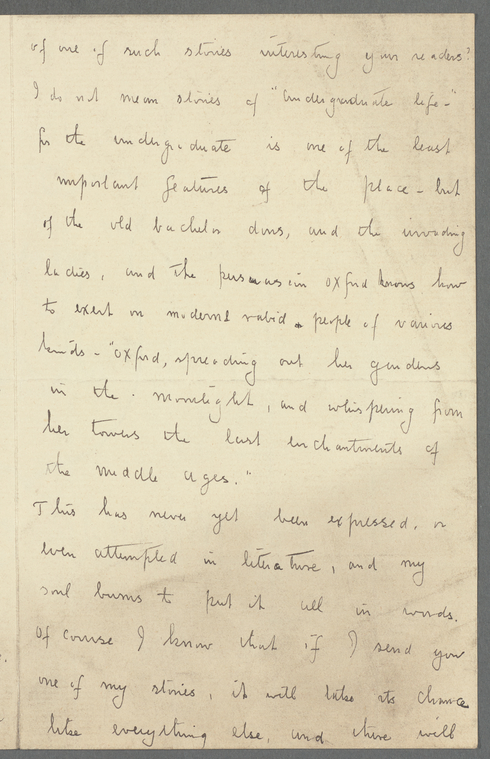 of one of such stories interesting your readers?
I do not mean stories of "undergraduate life-"
for the undergraduate is one of the least
important features of the place - but
of the old bachelor dons, and the invading
ladies, and the persuasion Oxford knows how
to exert on modern people of various
kinds - "Oxford, spreading out her gardens
in the moonlight, and whispering from
her towers the last enchantments of
the middle ages."
This has never yet been expressed, or
even attempted in literature, and my
soul burns to put it all in words.
Of course I know that if I send you
one of my stories, it will take its chance
like everything else, and there will